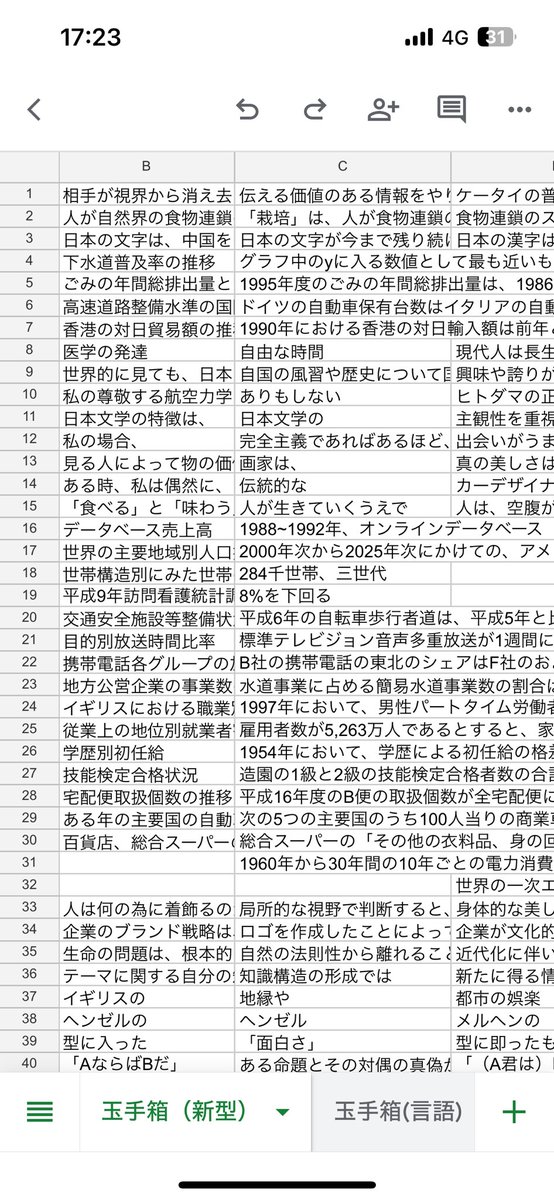 17:23 4G 31
B C
1 相手が視界から消え去 伝える価値のある情報をやり ケータイの普
2 人が自然界の食物連鎖 「栽培」は、人が食物連鎖の 食物連鎖のス
3 日本の文字は、中国を 日本の文字が今まで残り続け 日本の漢字は
4 下水道普及率の推移 グラフ中のyに入る数値として最も近いも
5 ごみの年間総排出量と 1995年度のごみの年間総排出量は、1986
6 高速道路整備水準の国 ドイツの自動車保有台数はイタリアの自動
7 香港の対日貿易額の推 1990年における香港の対日輸入額は前年と
8 医学の発達 自由な時間 現代人は長生
9 世界的に見ても、日本 自国の風習や歴史について 興味や誇りが
10 私の尊敬する航空力学 ありもしない ヒトダマの正
11 日本文学の特徴は、 日本文学の 主観性を重視
12 私の場合、 完全主義であればあるほど、 出会いがうま
13 見る人によって物の価 画家は、 真の美しさは
14 ある時、私は偶然に、 伝統的な カーデザイナ
15 「食べる」と「味わう 人が生きていくうえで 人は、空腹が
16 データベース売上高 1988~1992年、オンラインデータベース
17 世界の主要地域別人口 2000年次から2025年次にかけての、アメ
18 世帯構造別にみた世帯 284千世帯、三世代
19 平成9年訪問看護統計調 8%を下回る
20 交通安全施設等整備状 平成6年の自転車歩行者道は、平成5年と比
21 目的別放送時間比率 標準テレビジョン音声多重放送が1週間に
22 携帯電話各グループの B社の携帯電話の東北のシェアはF社のお
23 地方公営企業の事業数 水道事業に占める簡易水道事業数の割合は
24 イギリスにおける職業 1997年において、男性パートタイム労働者
25 従業上の地位別就業者 雇用者数が5,263万人であるとすると、家
26 学歴別初任給 1954年において、学歴による初任給の格差
27 技能検定合格状況 造園の1級と2級の技能検定合格者数の合計
28 宅配便取扱個数の推移 平成16年度のB便の取扱個数が全宅配便に
29 ある年の主要国の自動 次の5つの主要国のうち100人当りの商業車
30 百貨店、総合スーパー 総合スーパーの「その他の衣料品、身の回
31 1960年から30年間の10年ごとの電力消費
32 世界の一次エ
33 人は何の為に着飾るの 局所的な視野で判断すると、 身体的な美し
34 企業のブランド戦略は ロゴを作成したことによって 企業が文化的
35 生命の問題は、根本的 自然の法則性から離れること 近代化に伴い
36 テーマに関する自分の 知識構造の形成では 新たに得る情
37 イギリスの 地縁や 都市の娯楽
38 ヘンゼルの ヘンゼル メルヘンの
39 型に入った 「面白さ」 型に即ったも
40 「AならばBだ」 ある命題とその対偶の真偽が 「（A君は）
玉手箱（新型） 玉手箱(言語)